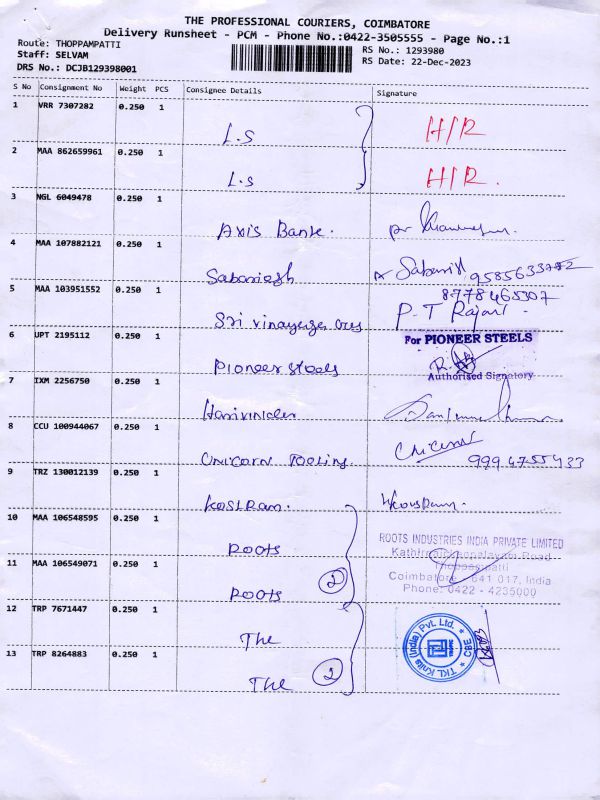 THE PROFESSIONAL COURIERS, COIMBATORE
Delivery Runsheet - PCM - Phone No.:0422-3505555 - Page No.:1
Route: THOPPAMPATTI RS No.: 1293980
Staff: SELVAM RS Date: 22-Dec-2023
DRS No.: DCJB129398001
S No Consignment No Weight PCS Consignee Details Signature
1 VRR 7307282 0.250 1
L.S H/R
2 MAA 862659961 0.250 1
L.S H/R.
3 NGL 6049478 0.250 1
Axis Bank.
4 MAA 107882121 0.250 1
9585633782
5 MAA 103951552 0.250 1
8778465307
Sri P.T Rajan.
6 UPT 2195112 0.250 1
For PIONEER STEELS
Pioneer steels
Authorised Signatory
7 IXM 2256750 0.250 1
8 CCU 100944067 0.250 1
UNICORN TOOLING. 9994755433
9 TRZ 130012139 0.250 1
10 MAA 106548595 0.250 1
ROOTS
ROOTS INDUSTRIES INDIA PRIVATE LIMITED
Road
11 MAA 106549071 0.250 1
Thoppampatti
2 Coimbatore - 641 017, India
ROOTS Phone: 0422 - 4235000
12 TRP 7671447 0.250 1
The
TKL Knits (India) Pvt. Ltd. * CBE *
13 TRP 8264883 0.250 1
The 2